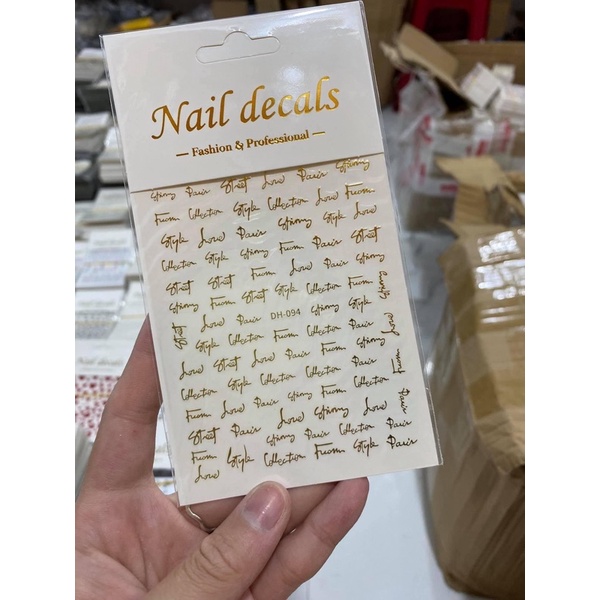 Nail decals
— Fashion & Professional —
Paris Street Love Paris Strong
From Collection Style Collection Love From
Style Love Paris Strong Style Love
Collection Style Strong From Paris Street
Street Street From Love Paris Strong
Strong From Street Style Collection From Strong
Street Love Paris DH-094 Strong Style
Style Collection From Collection Paris Love
Love Street Love Paris From Strong
Collection Style Collection Collection Paris From
From Love Paris Strong Collection From
Street Paris Love Strong Love Paris
Strong Paris Collection Paris
From Style Collection From Style Paris
Love
Nail decals